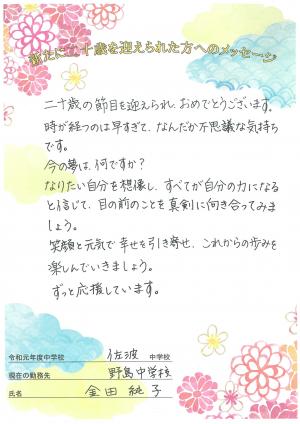 新たに二十歳を迎えられた方へのメッセージ
二十歳の節目を迎えられ、おめでとうございます。
時が経つのは早すぎて、なんだか不思議な気持ち
です。
今の夢は、何ですか？
なりたい自分を想像し、すべてが自分の力になる
と信じて、目の前のことを真剣に向き合ってみま
しょう。
笑顔と元気で幸せを引き寄せ、これからの歩みを
楽しんでいきましょう。
ずっと応援しています。
令和元年度中学校 佐波 中学校
現在の勤務先 野島中学校
氏名 金田 純子